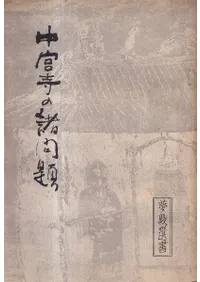 中宮寺の諸問題
夢殿叢書